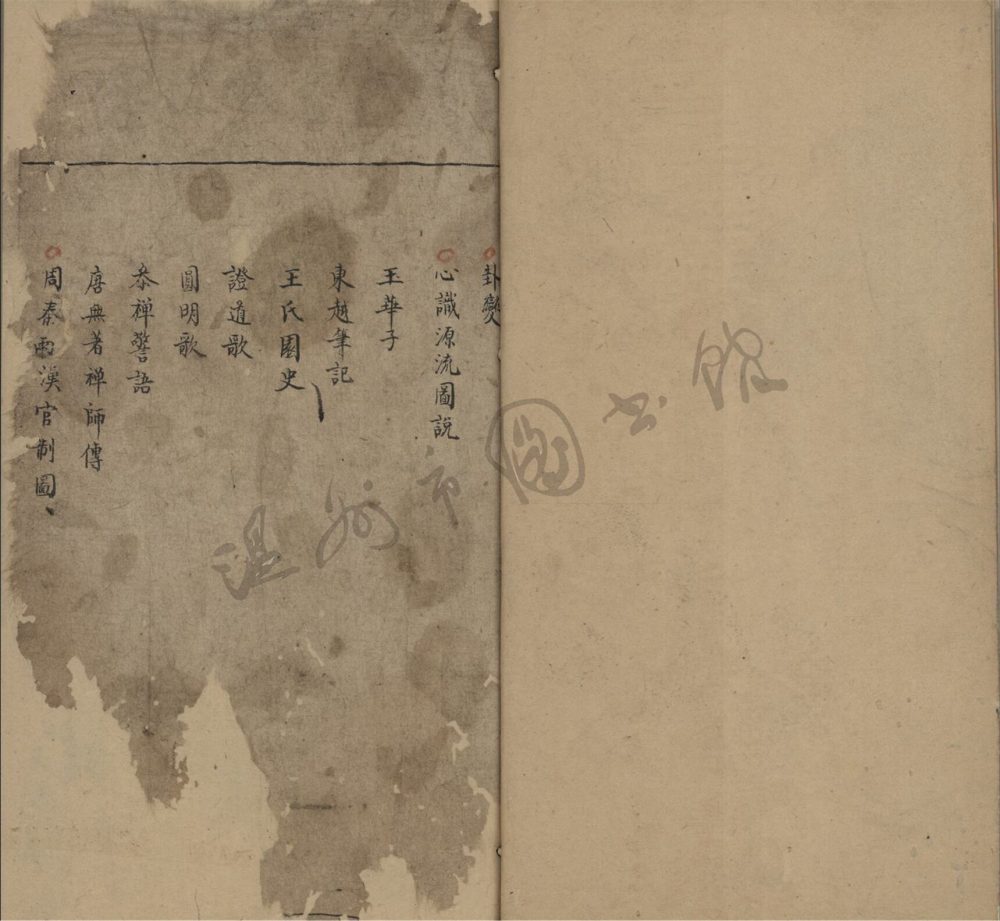 卦變
心識源流圖說
玉華子
東越筆記
王氏國史
證道歌
圓明歌
叅禪警語
唐無著禪師傳
周秦兩漢官制圖
温州市圖書館